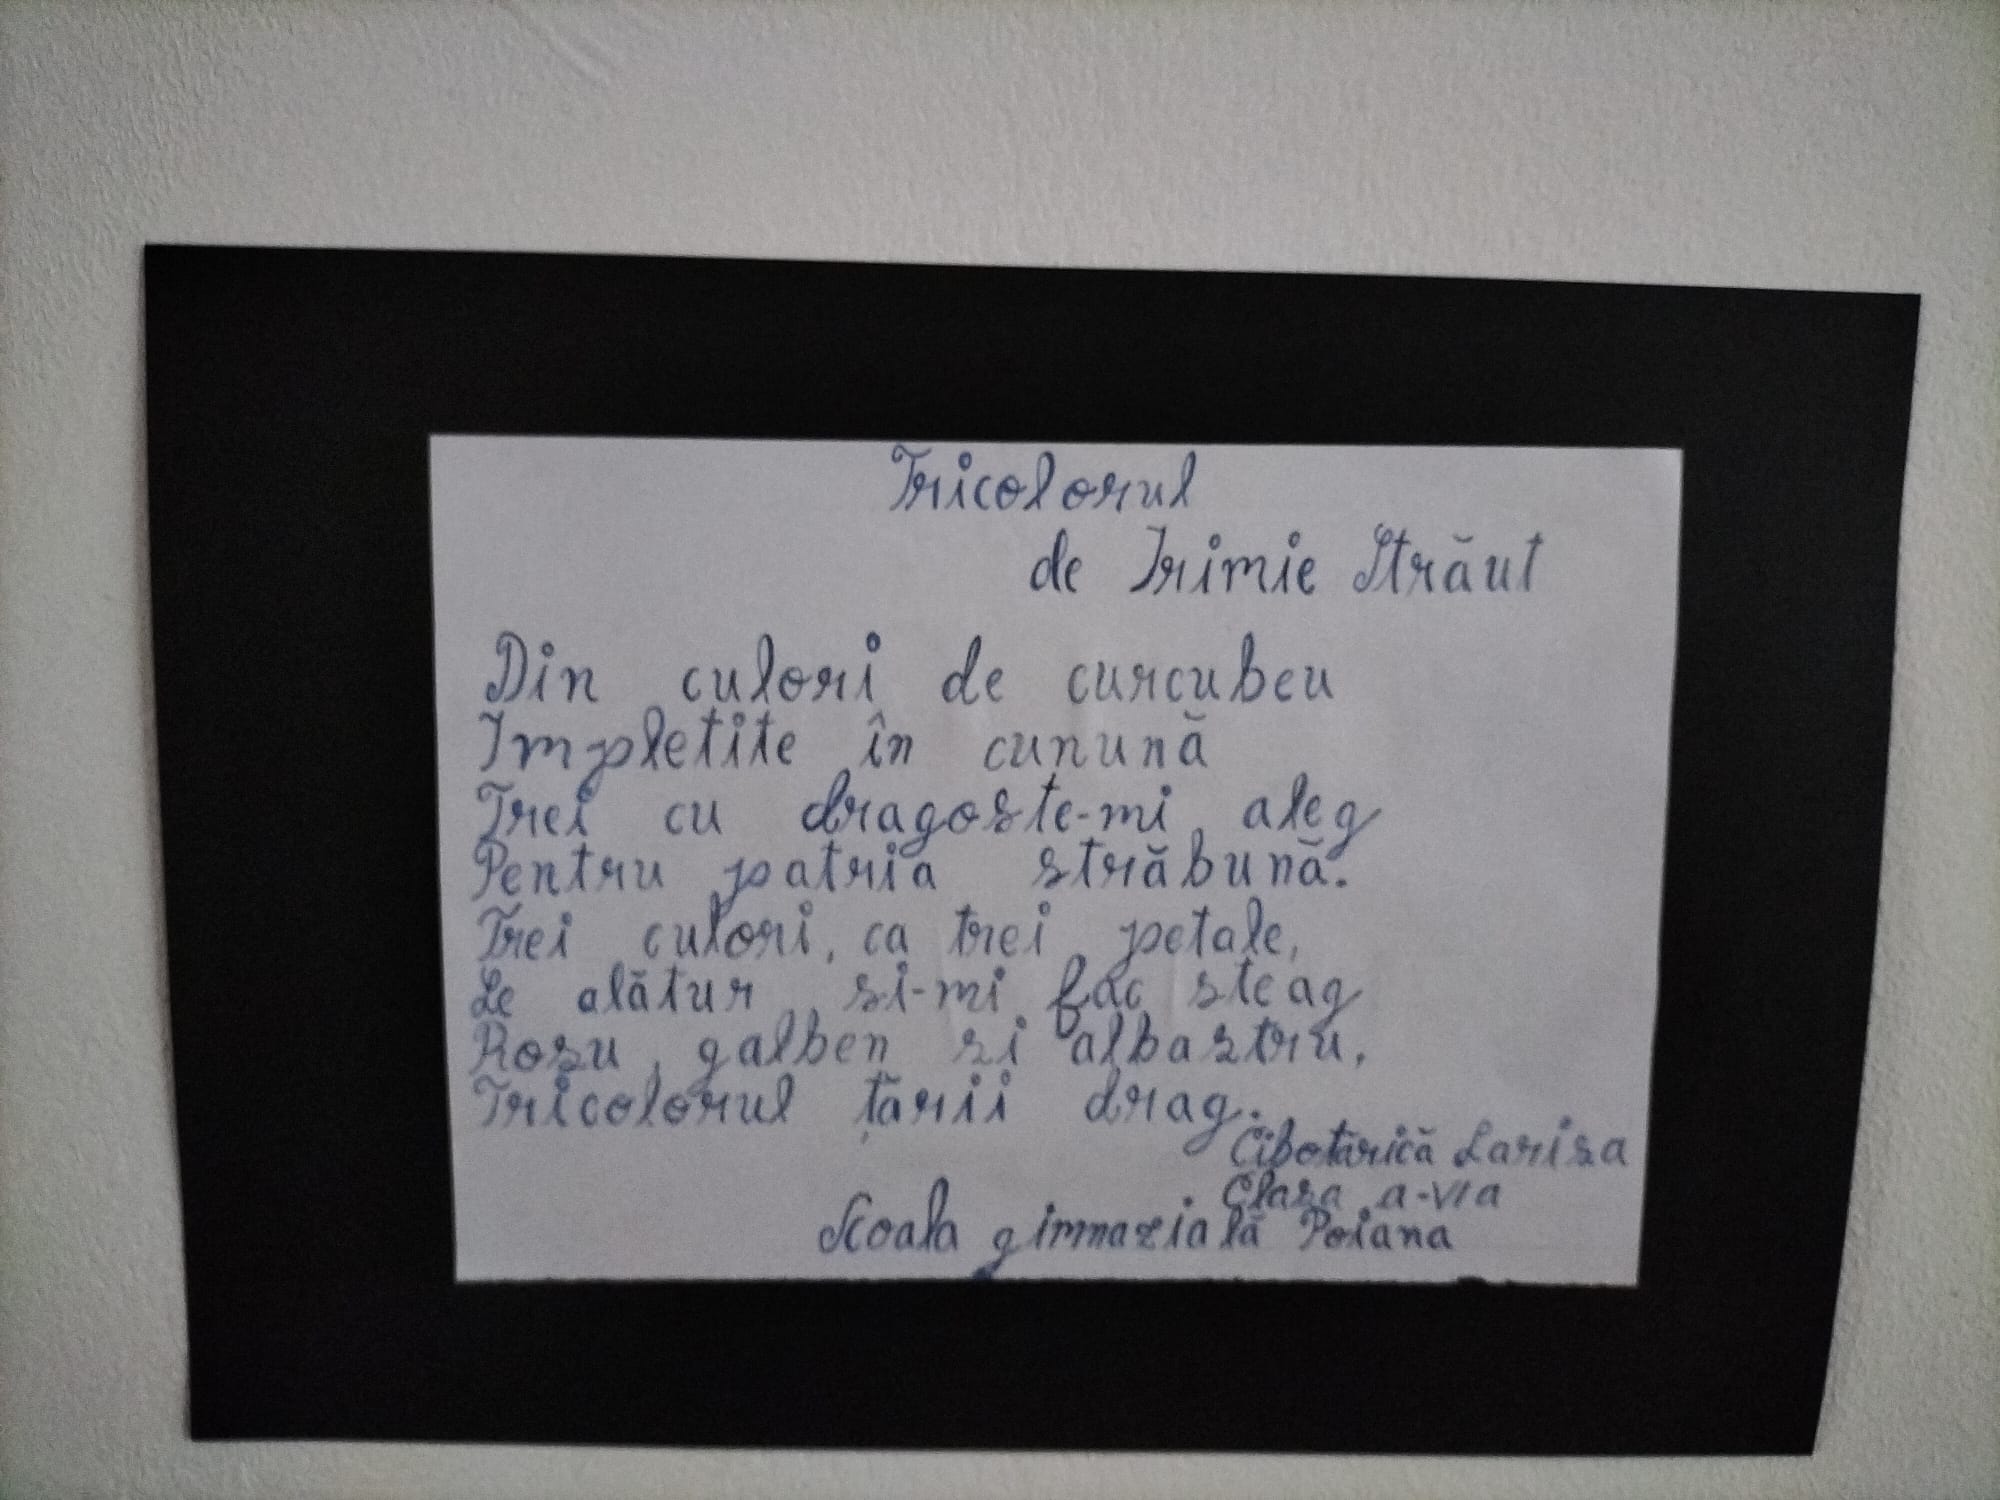 Tricolorul
de Irimie Străut
Din culori de curcubeu
Impletite în cunună
Trei cu dragoste-mi aleg
Pentru patria străbună.
Trei culori, ca trei petale,
Le alătur si-mi fac steag
Rosu, galben si albastru,
Tricolorul țării drag.
Cibotărică Larisa
Clasa a-VIa
Scoala gimnazială Poiana